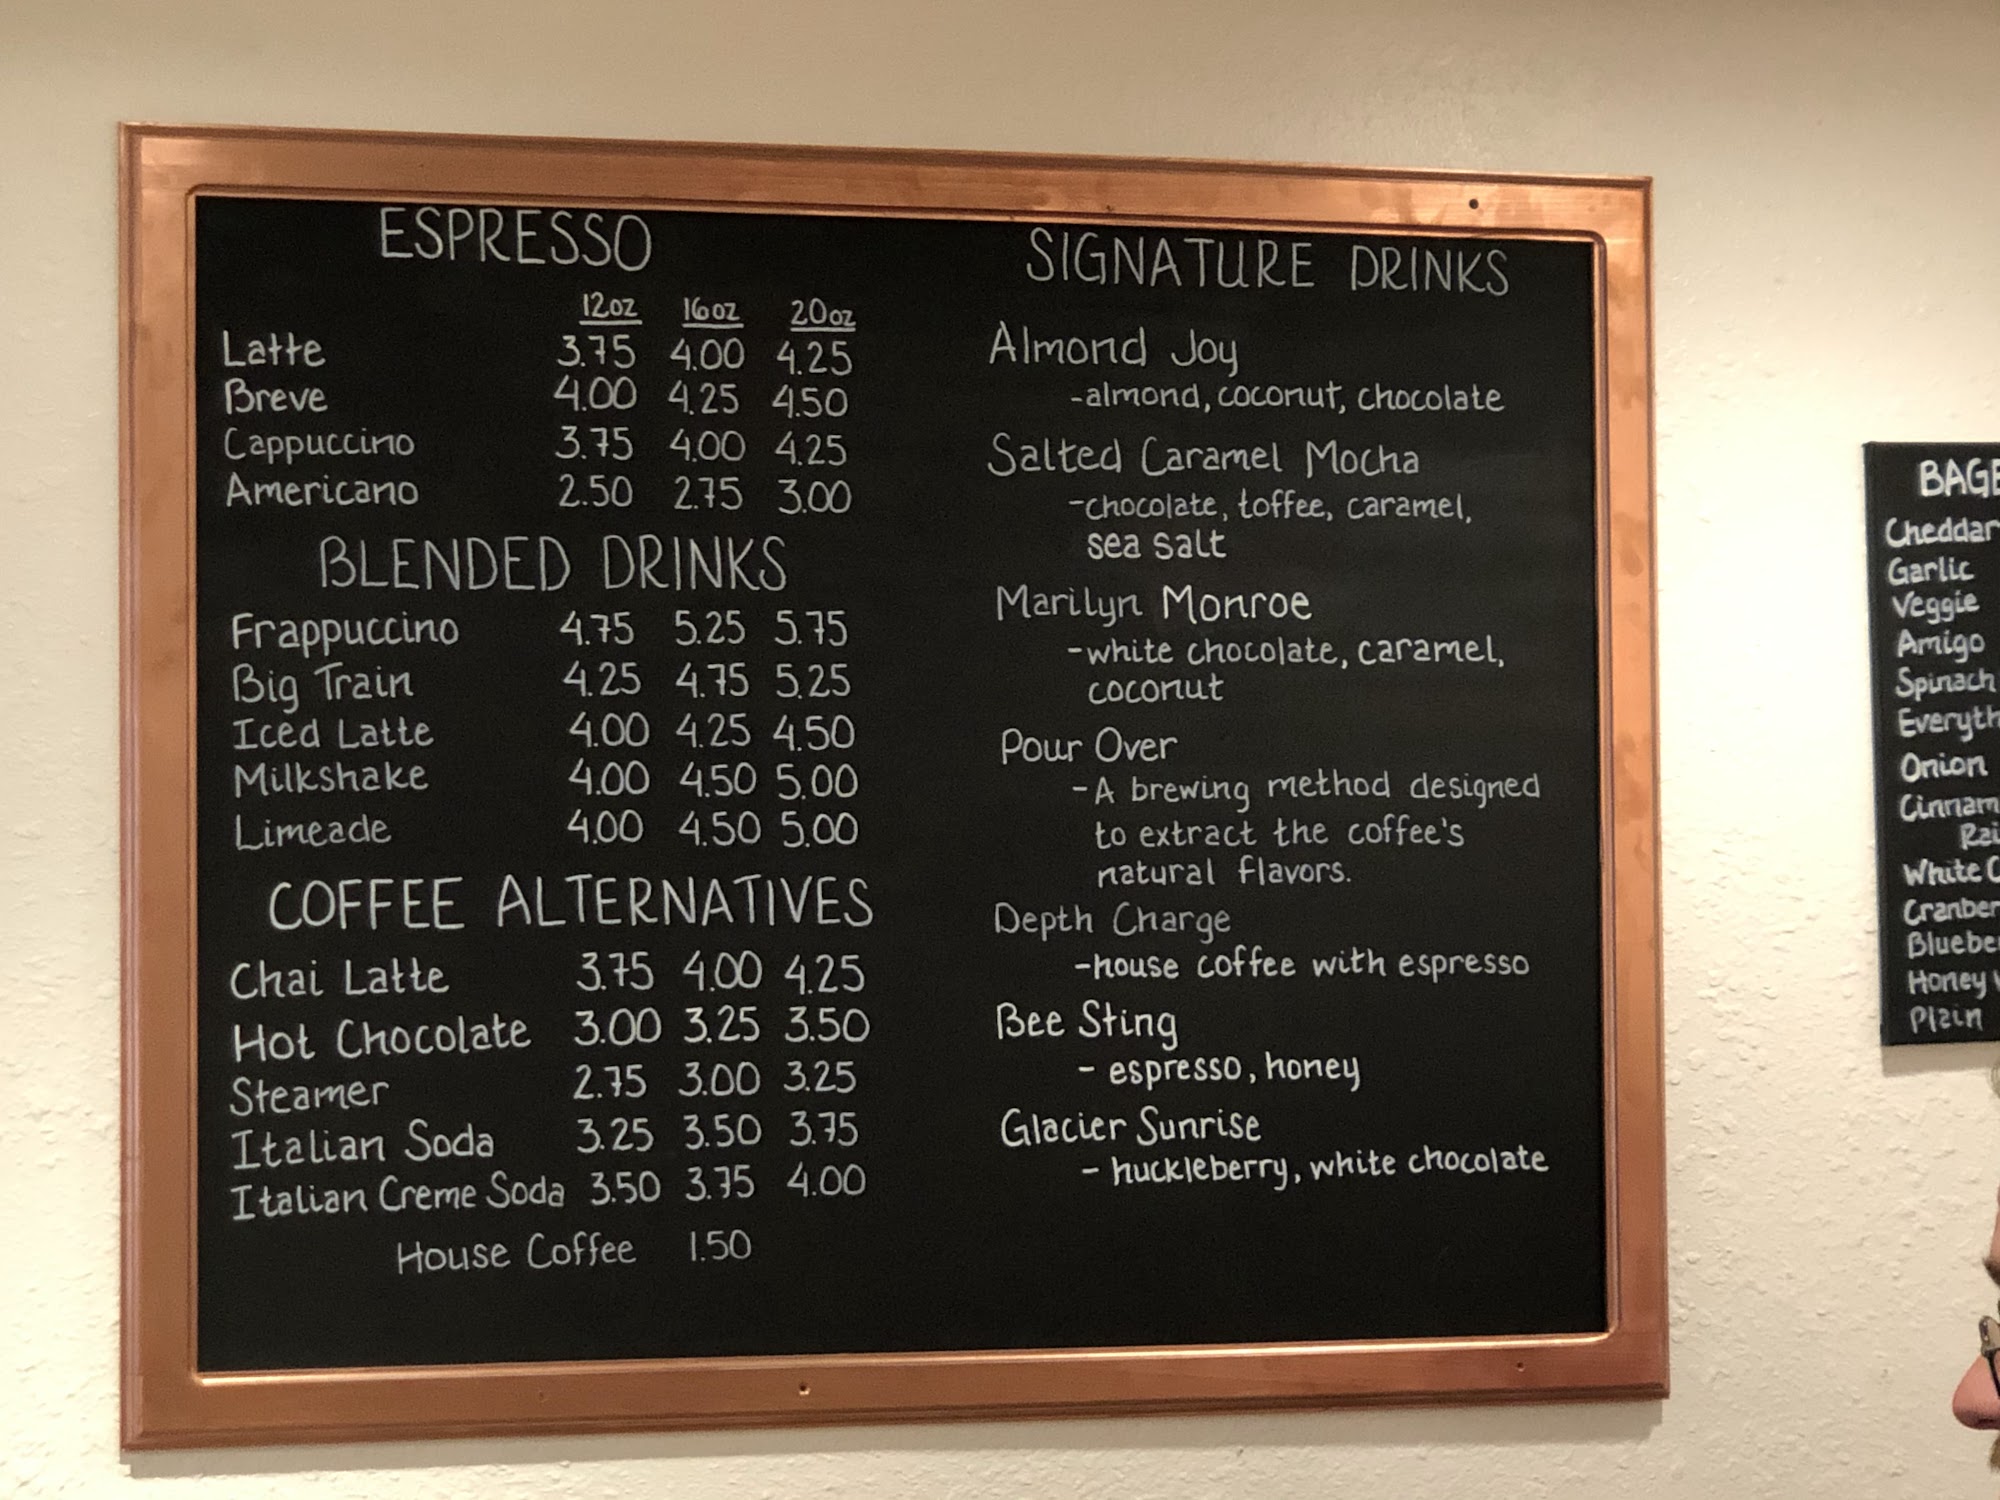 ESPRESSO
12oz 16oz 20oz
Latte 3.75 4.00 4.25
Breve 4.00 4.25 4.50
Cappuccino 3.75 4.00 4.25
Americano 2.50 2.75 3.00
BLENDED DRINKS
Frappuccino 4.75 5.25 5.75
Big Train 4.25 4.75 5.25
Iced Latte 4.00 4.25 4.50
Milkshake 4.00 4.50 5.00
Limeade 4.00 4.50 5.00
COFFEE ALTERNATIVES
Chai Latte 3.75 4.00 4.25
Hot Chocolate 3.00 3.25 3.50
Steamer 2.75 3.00 3.25
Italian Soda 3.25 3.50 3.75
Italian Creme Soda 3.50 3.75 4.00
House Coffee 1.50
SIGNATURE DRINKS
Almond Joy
-almond, coconut, chocolate
Salted Caramel Mocha
-chocolate, toffee, caramel,
sea salt
Marilyn Monroe
-white chocolate, caramel,
coconut
Pour Over
-A brewing method designed
to extract the coffee's
natural flavors.
Depth Charge
-house coffee with espresso
Bee Sting
- espresso, honey
Glacier Sunrise
- huckleberry, white chocolate
Cheddar
Garlic
Veggie
Amigo
Spinach
Onion
White
Plain